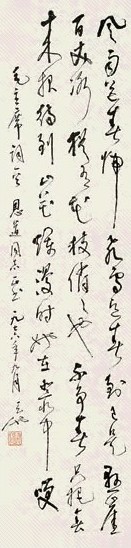 风雨送春归飞雪迎春到已是悬崖
百丈冰犹有花枝俏俏也不争春只把春
来报待到山花烂漫时她在丛中笑
毛主席词一首 恩道同志正 一九六八年九月